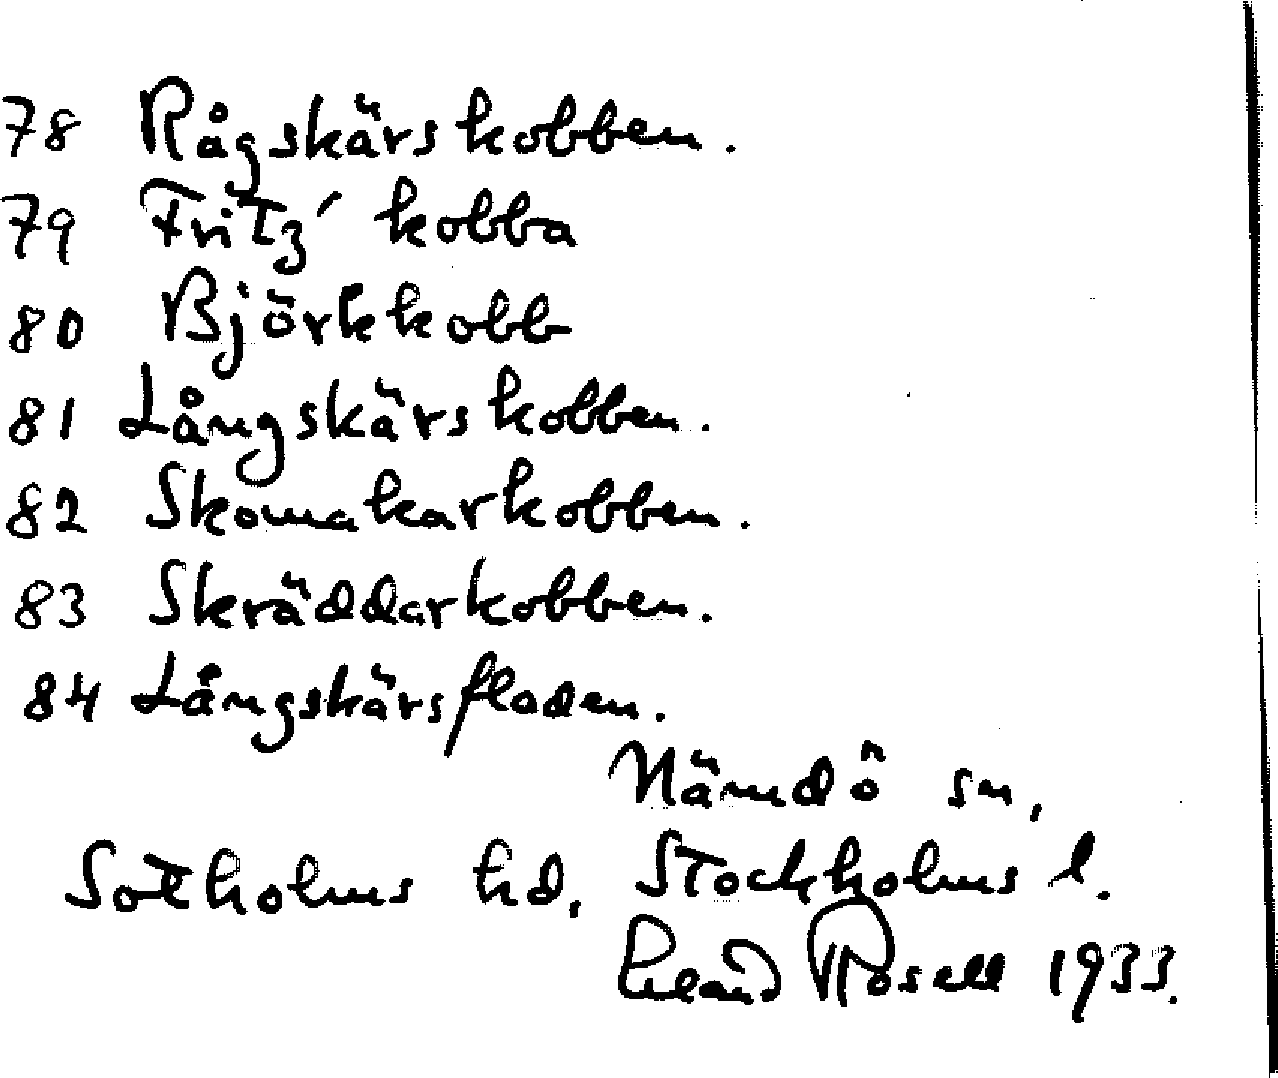 78 Rågskärskobben.
79 Fritz' kobba
80 Björkkobb
81 Långskärskobben.
82 Skomakarkobben.
83 Skräddarkobben.
84 Långskärsfladen.
Nämdö sn,
Sotholms hd, Stockholms l.
Rosell 1933.